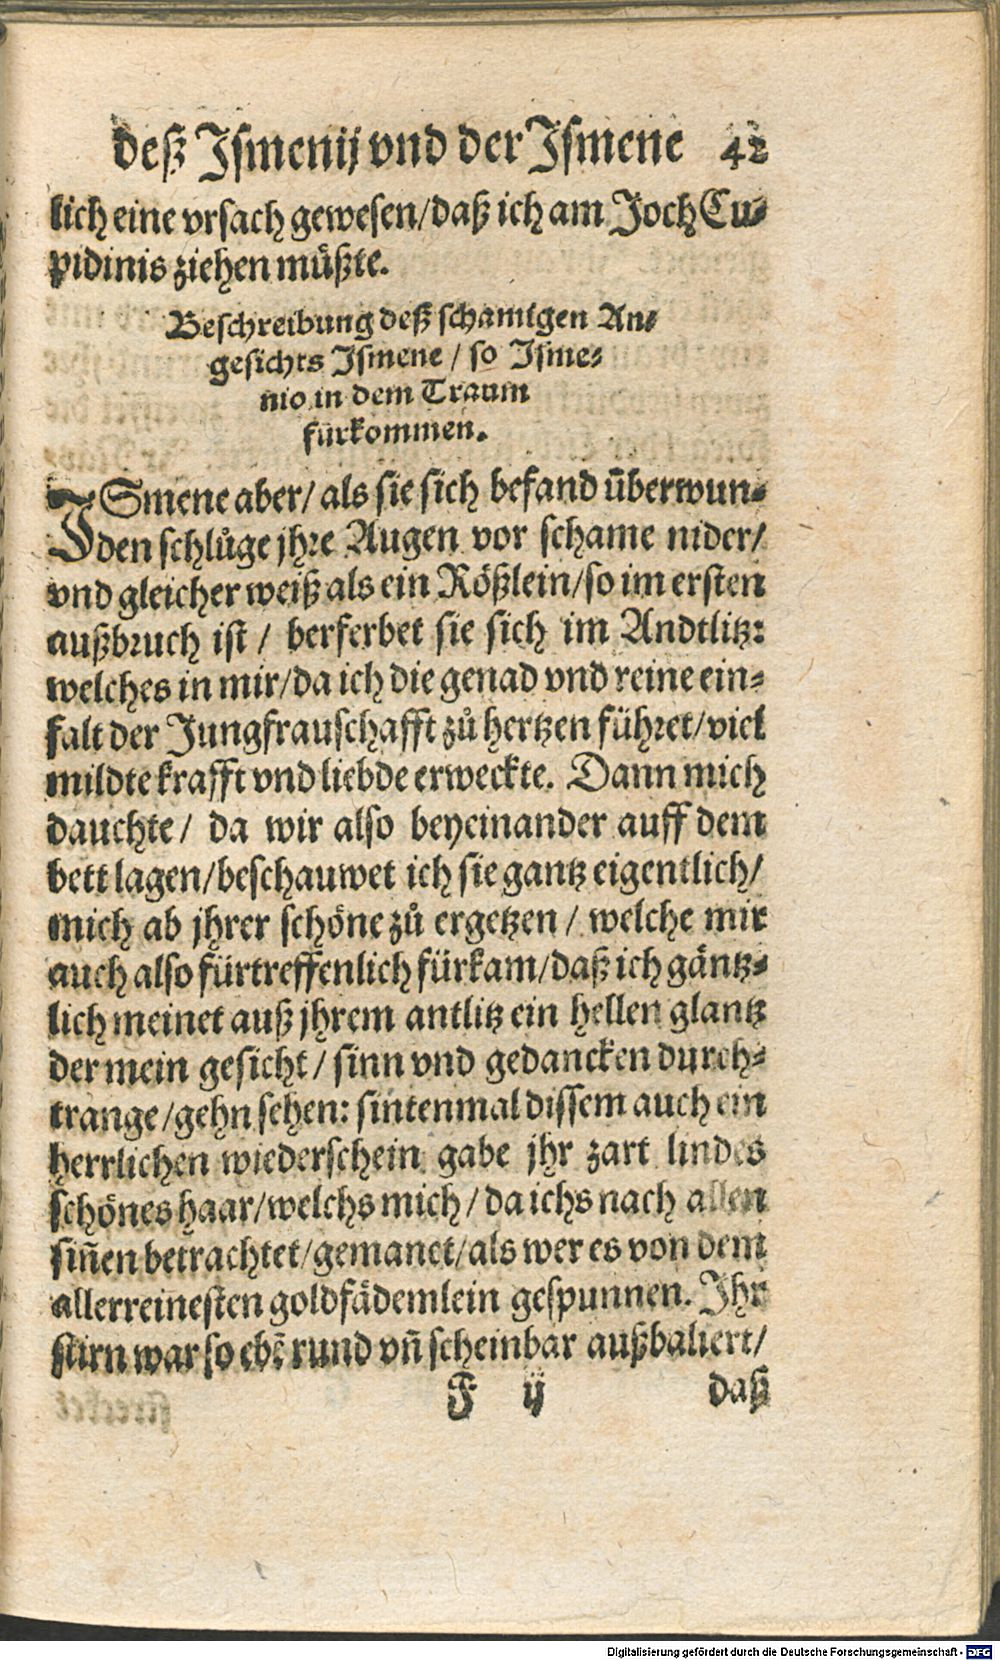 deß Ismenij vnd der Ismene 42
lich eine vrsach gewesen/daß ich am Joch Cu-
pidinis ziehen müßte.
Beschreibung deß schamigen An-
gesichts Ismene / so Isme-
nio in dem Traum
fürkommen.
ISmene aber/ als sie sich befand überwun-
den schlůge jhre Augen vor schame nider/
vnd gleicher weiß als ein Rößlein/so im ersten
außbruch ist / berferbet sie sich im Andtlitz:
welches in mir/da ich die genad vnd reine ein-
falt der Jungfrauschafft zů hertzen führet/viel
mildte krafft vnd liebde erweckte. Dann mich
dauchte/ da wir also beyeinander auff dem
bett lagen/beschauwet ich sie gantz eigentlich/
mich ab jhrer schöne zů ergetzen / welche mir
auch also fürtreffenlich fürkam/daß ich gäntz-
lich meinet auß jhrem antlitz ein hellen glantz
der mein gesicht / sinn vnd gedancken durch-
trange/gehn sehen: sintenmal dissem auch ein
herrlichen wiederschein gabe jhr zart lindes
schönes haar/welchs mich/ da ichs nach allen
siñen betrachtet/gemanet/als wer es von dem
allerreinesten goldfädemlein gespunnen. Ihr
stirn war so ebẽ rund vñ scheinbar außbaliert/
F ij daß
Digitalisierung gefördert durch die Deutsche Forschungsgemeinschaft - DFG